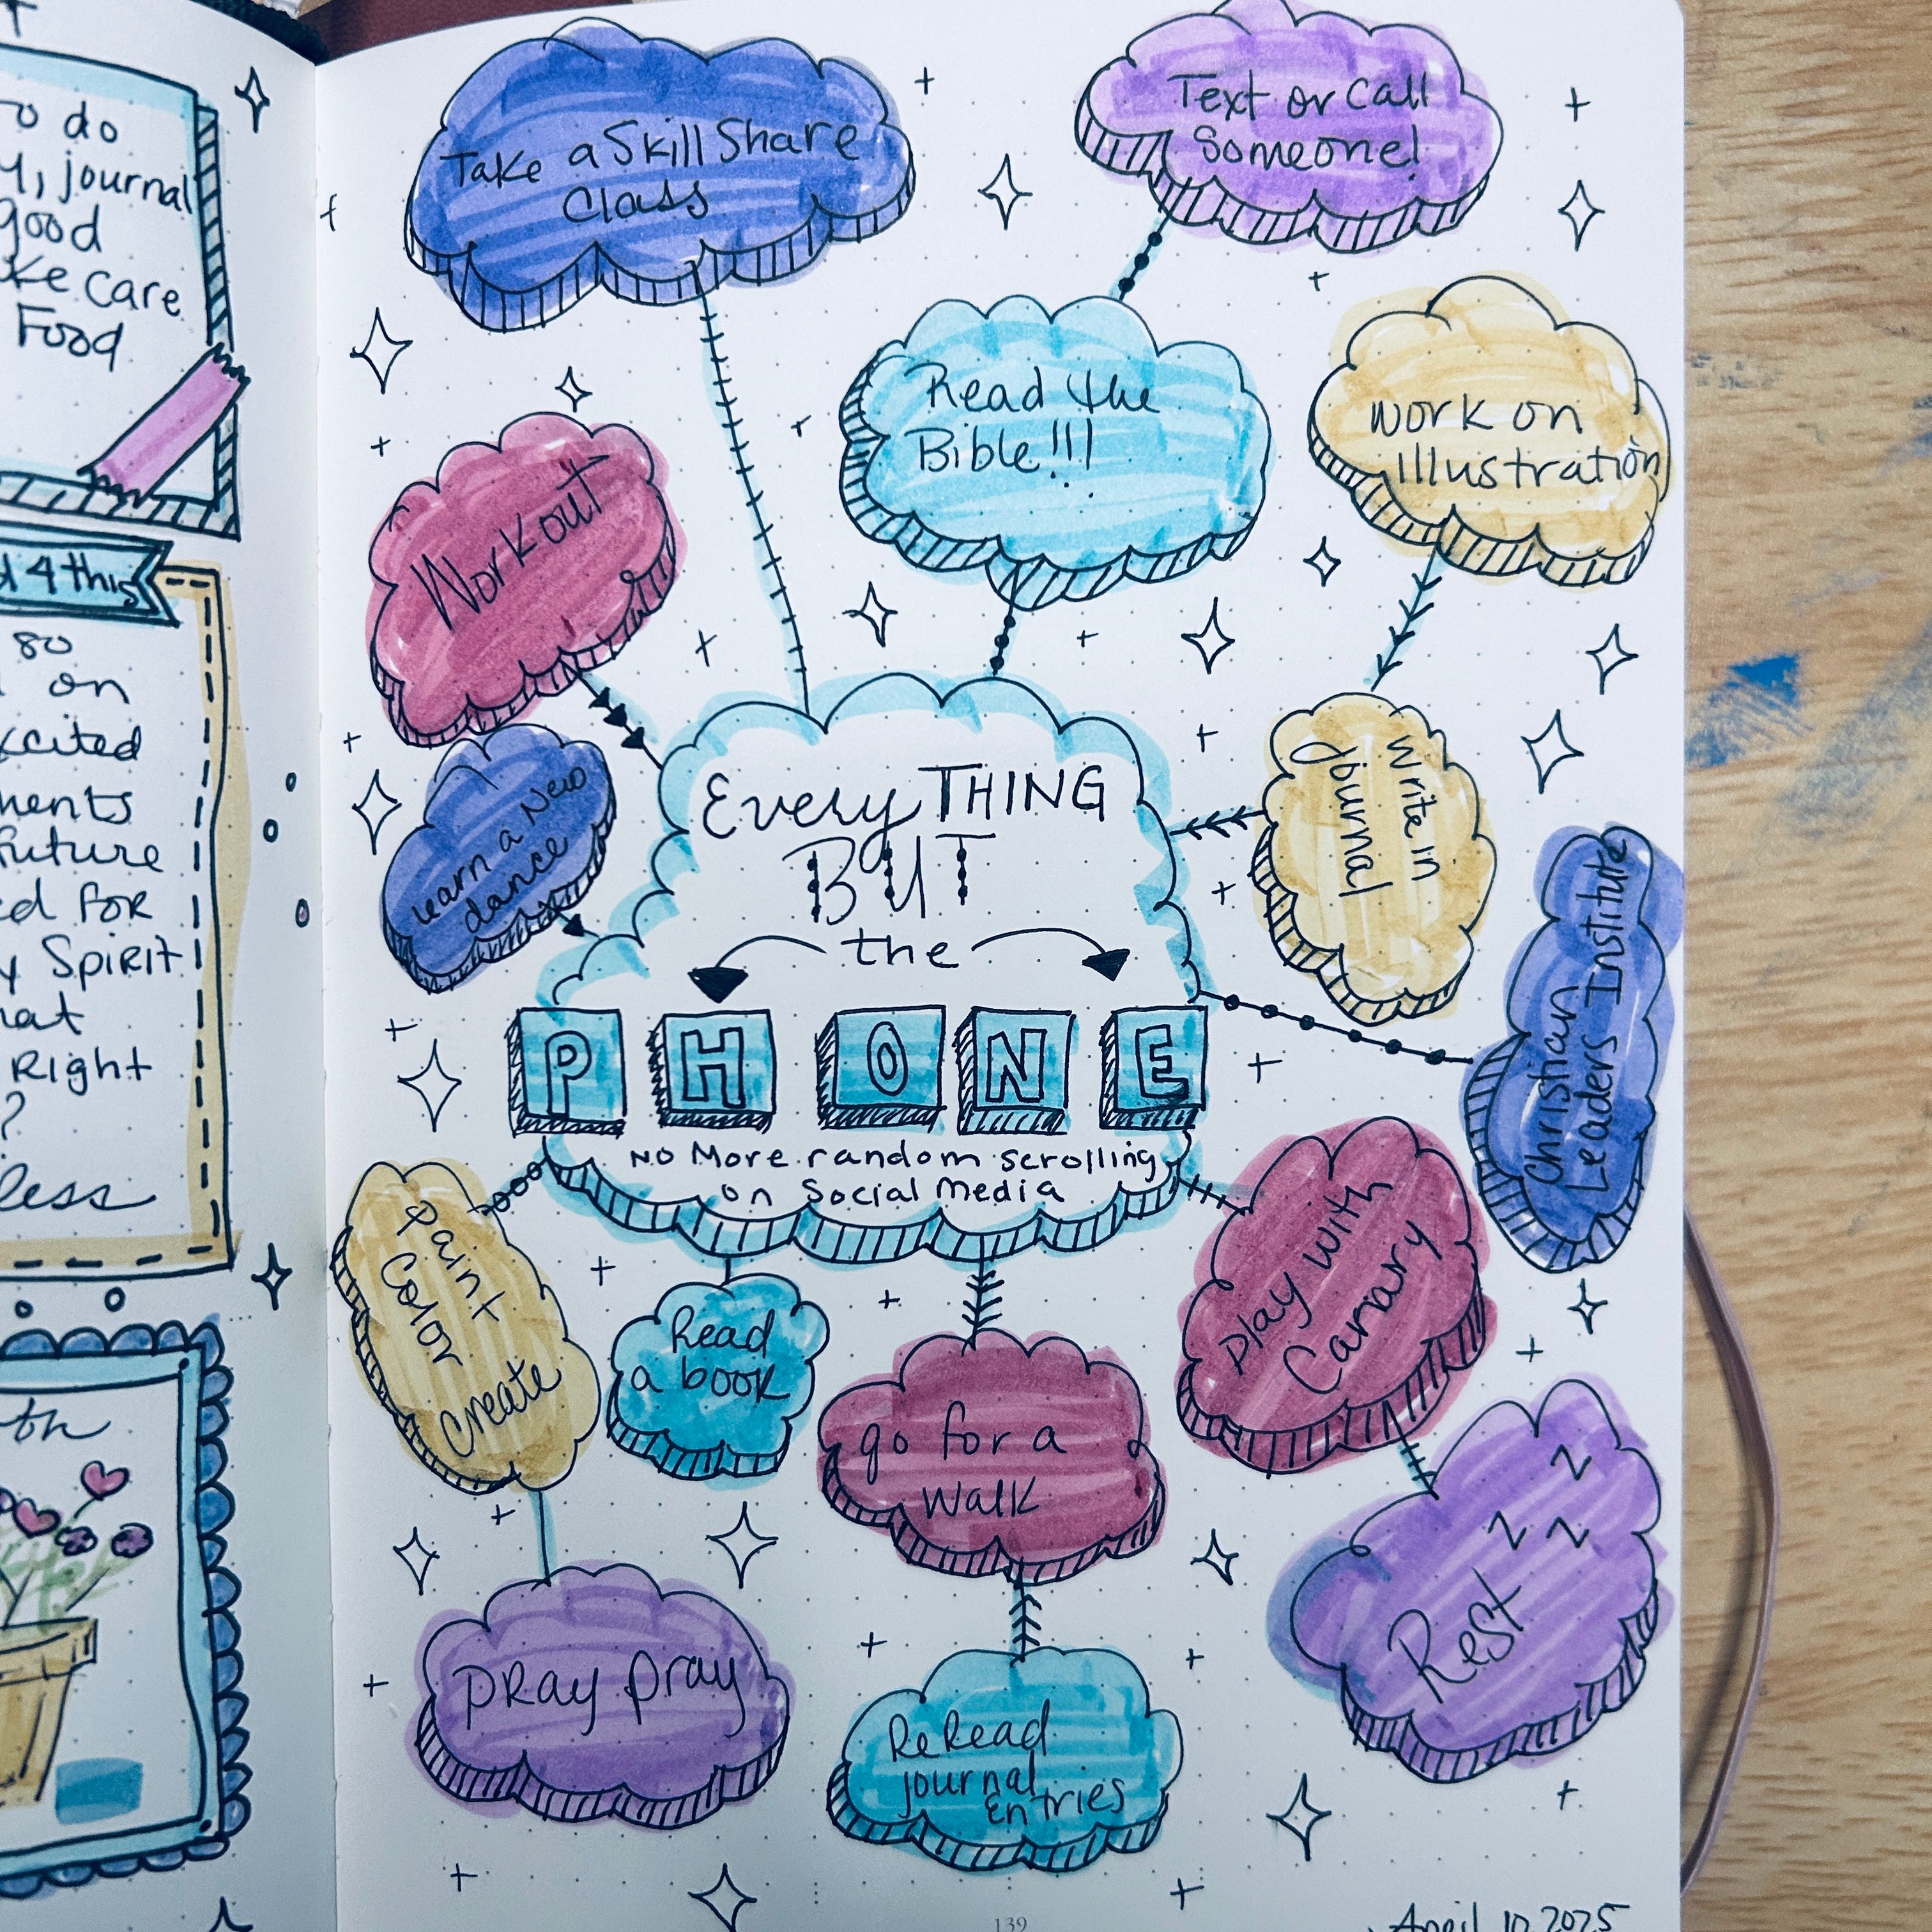 o do
y, journal
good
ke care
Food
4 this
so
on
xcited
ments
future
ed for
y Spirit
hat
Right
?
less
th
Take a SkillShare
Class
Text or Call
Someone!
Read the
Bible!!!
work on
illustration
Workout
Learn a New
dance
EveryTHING
BUT
the
PHONE
NO More random scrolling
on Social Media
Write in
Journal
Christian
Leaders Institute
Paint
Color
Create
Read
a book
go for a
walk
Play with
Canary
Z
Z Z
Rest
Pray pray
ReRead
journal
entries
139
April 10, 2025